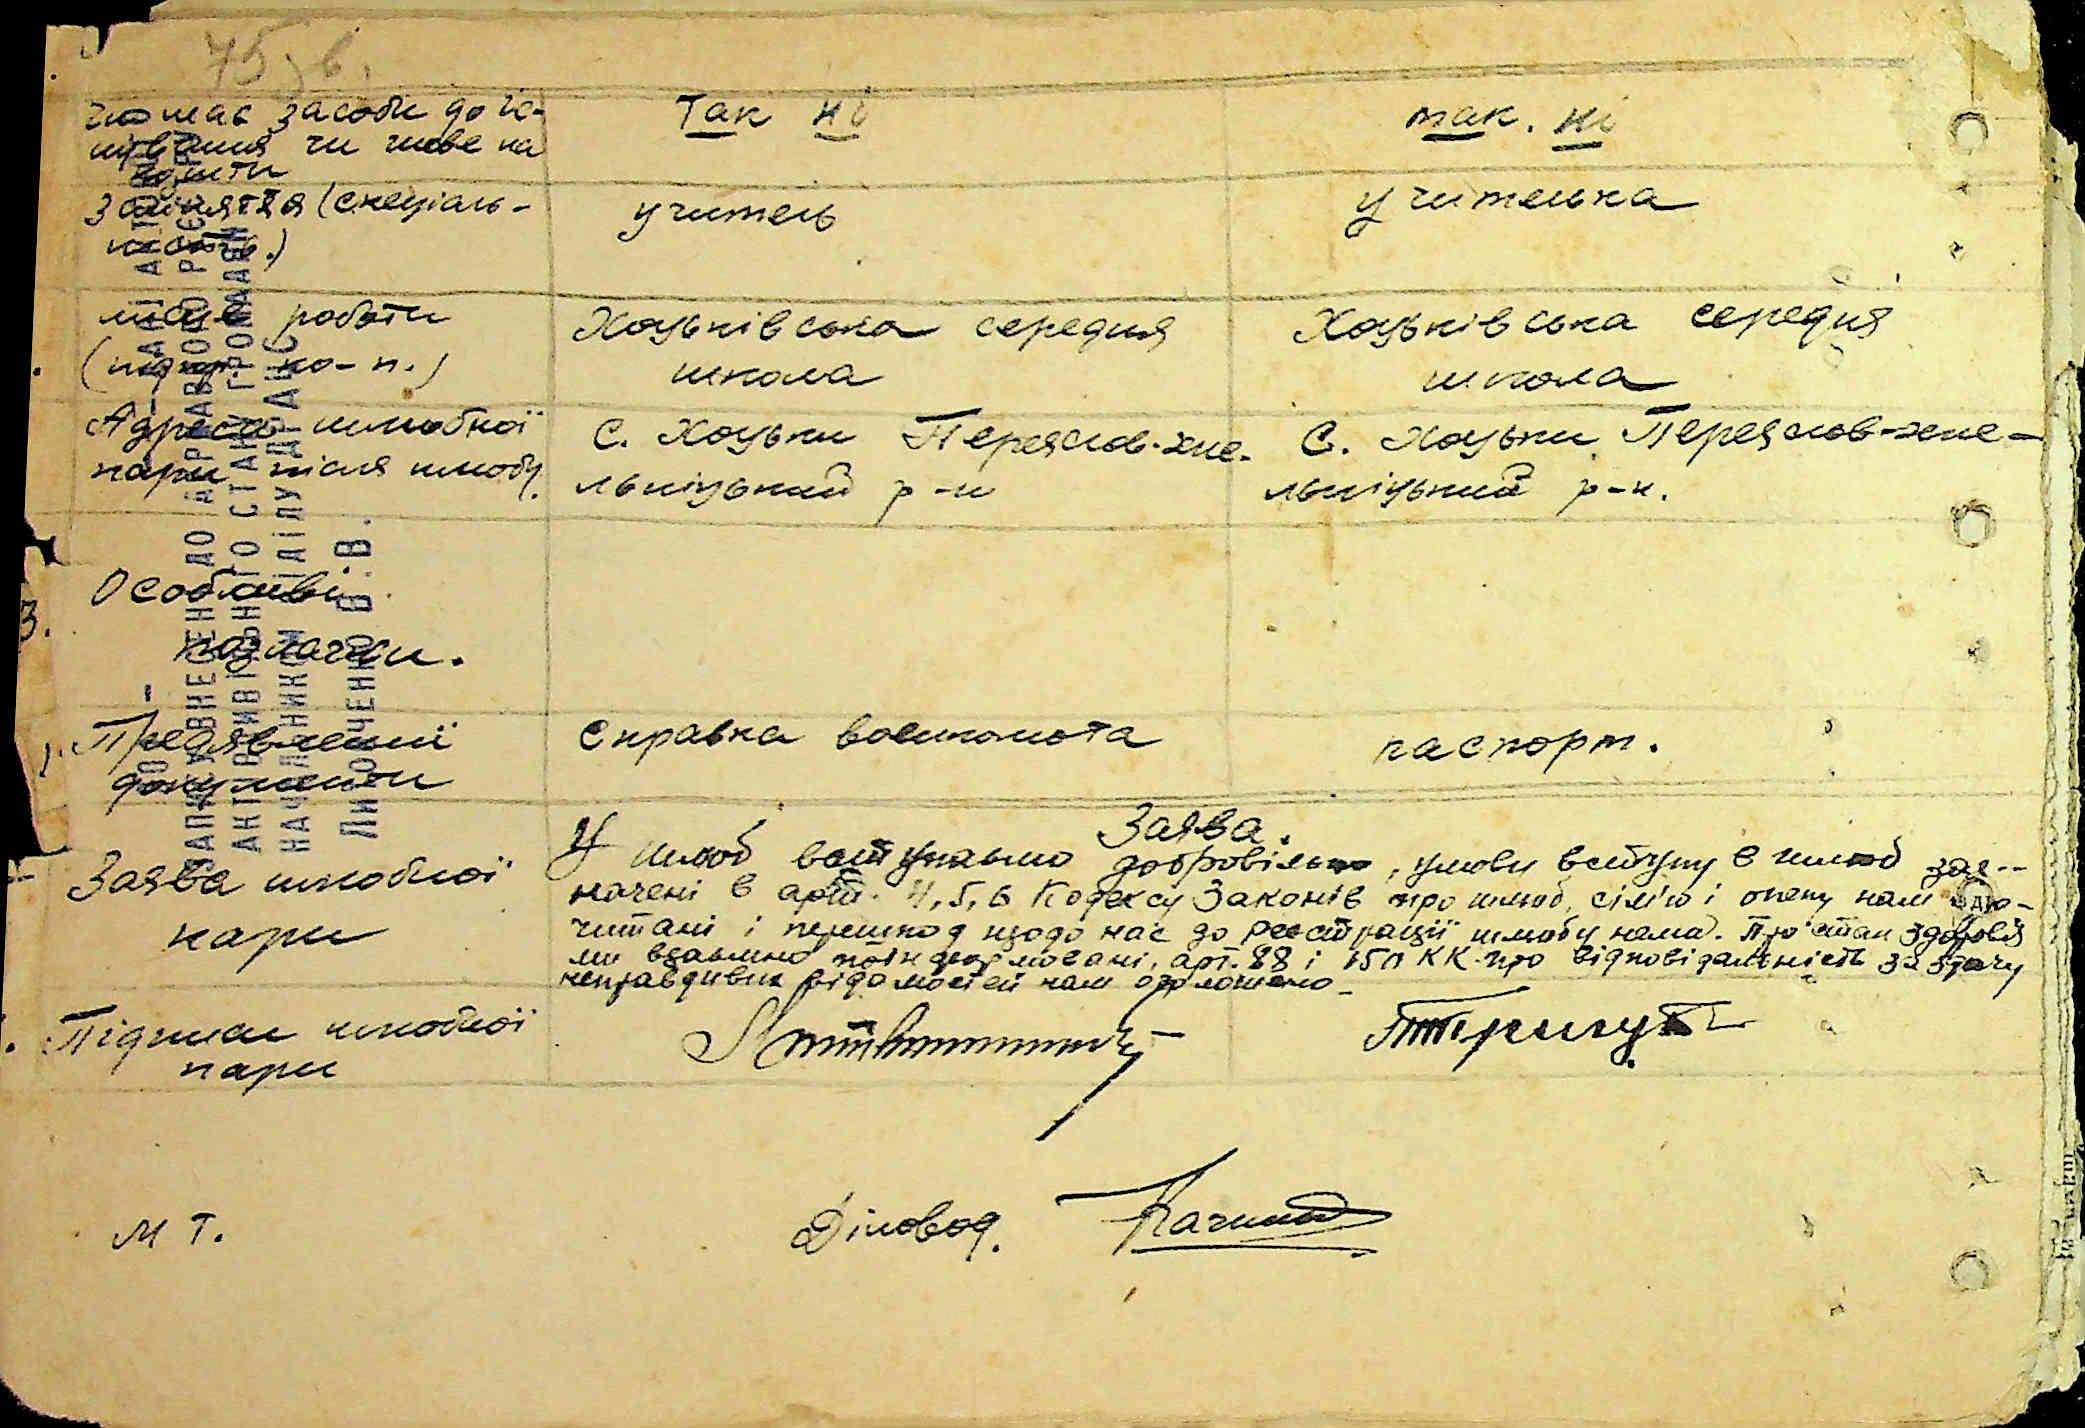 75, в.
чи має засоби до іс-
нування чи живе на
кошти
Так ні
так. ні
заняття (спеціаль-
ність.)
учитель
учителька
місце роботи
Хоцьківська середня
школа
Хоцьківська середня
школа
Адреса шлюбної
пари після шлюбу.
С. Хоцьки Переяслов-хме-
льніцький р-н
С. Хоцьки Переяслов-хме-
льніцький р-н.
Особливі
3.
назначки.
Предявлений
документи
Справка военкомота
паспорт.
Заява шлюбної
пари
Заява.
У шлюб вступаємо добровільно, умови вступу в шлюб заз--
начені в арт. 4, 5, 6 Кодексу Законів про шлюб, сім'ю і опеку нам про-
читані і перешкод щодо нас до реєстрації шлюбу нема. Про стан здоровія
ми взаємно поінформовані, арт. 88 і КК про відповідальність за здачу
неправдивих відомостей нам оголошено
Підписи шлюбної
пари
М Т.
Діловод.
АКТ ЦИВІЛЬНОГО СТАНУ ГРОМАДЯН
НАЧАЛЬНИКОМ ВІДДІЛУ ДРАЦС
В.В.